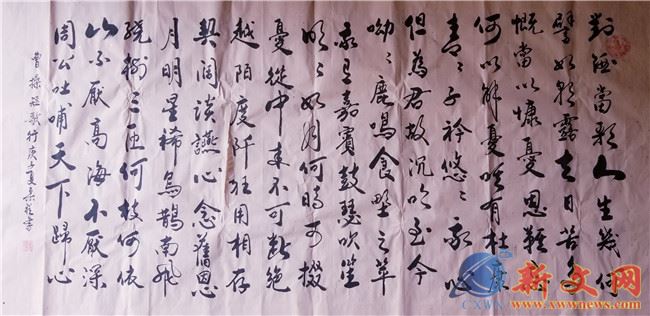 對酒當歌人生幾何
譬如朝露去日苦多
慨當以慷憂思難
何以解憂唯有杜康
青々子衿悠々我心
但為君故沉吟至今
呦々鹿鳴食野之苹
我有嘉賓鼓瑟吹笙
明々如月何時可掇
憂從中來不可斷絕
越陌度阡枉用相存
契闊談讌心念舊恩
月明星稀烏鵲南飛
繞樹三匝何枝何依
山不厭高海不厭深
周公吐哺天下歸心
曹操短歌行庚子夏書
新文网
www.xwwnews.com